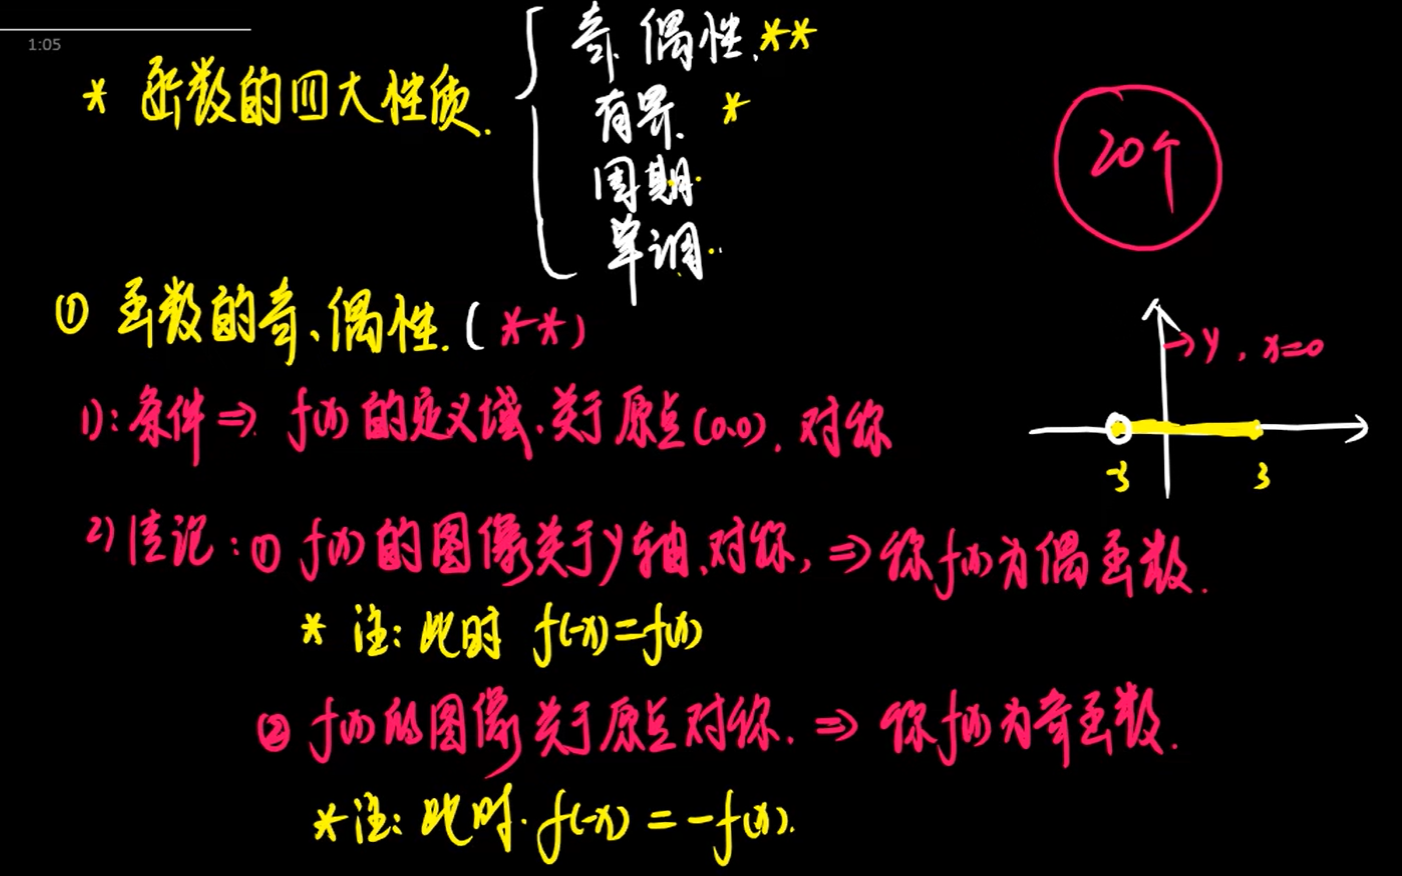 1:05
* 函数的四大性质.
奇.偶性.**
有界. *
周期.
单调.
20个
① 函数的奇、偶性.(**)
→y, x=0
1):条件⇒ f(x)的定义域.关于原点(0,0).对称
-3 3
2)结论:① f(x)的图像关于y轴.对称,⇒称f(x)为偶函数.
* 注:此时 f(-x)=f(x)
② f(x)的图像关于原点对称.⇒ 称f(x)为奇函数.
*注:此时.f(-x)=-f(x).